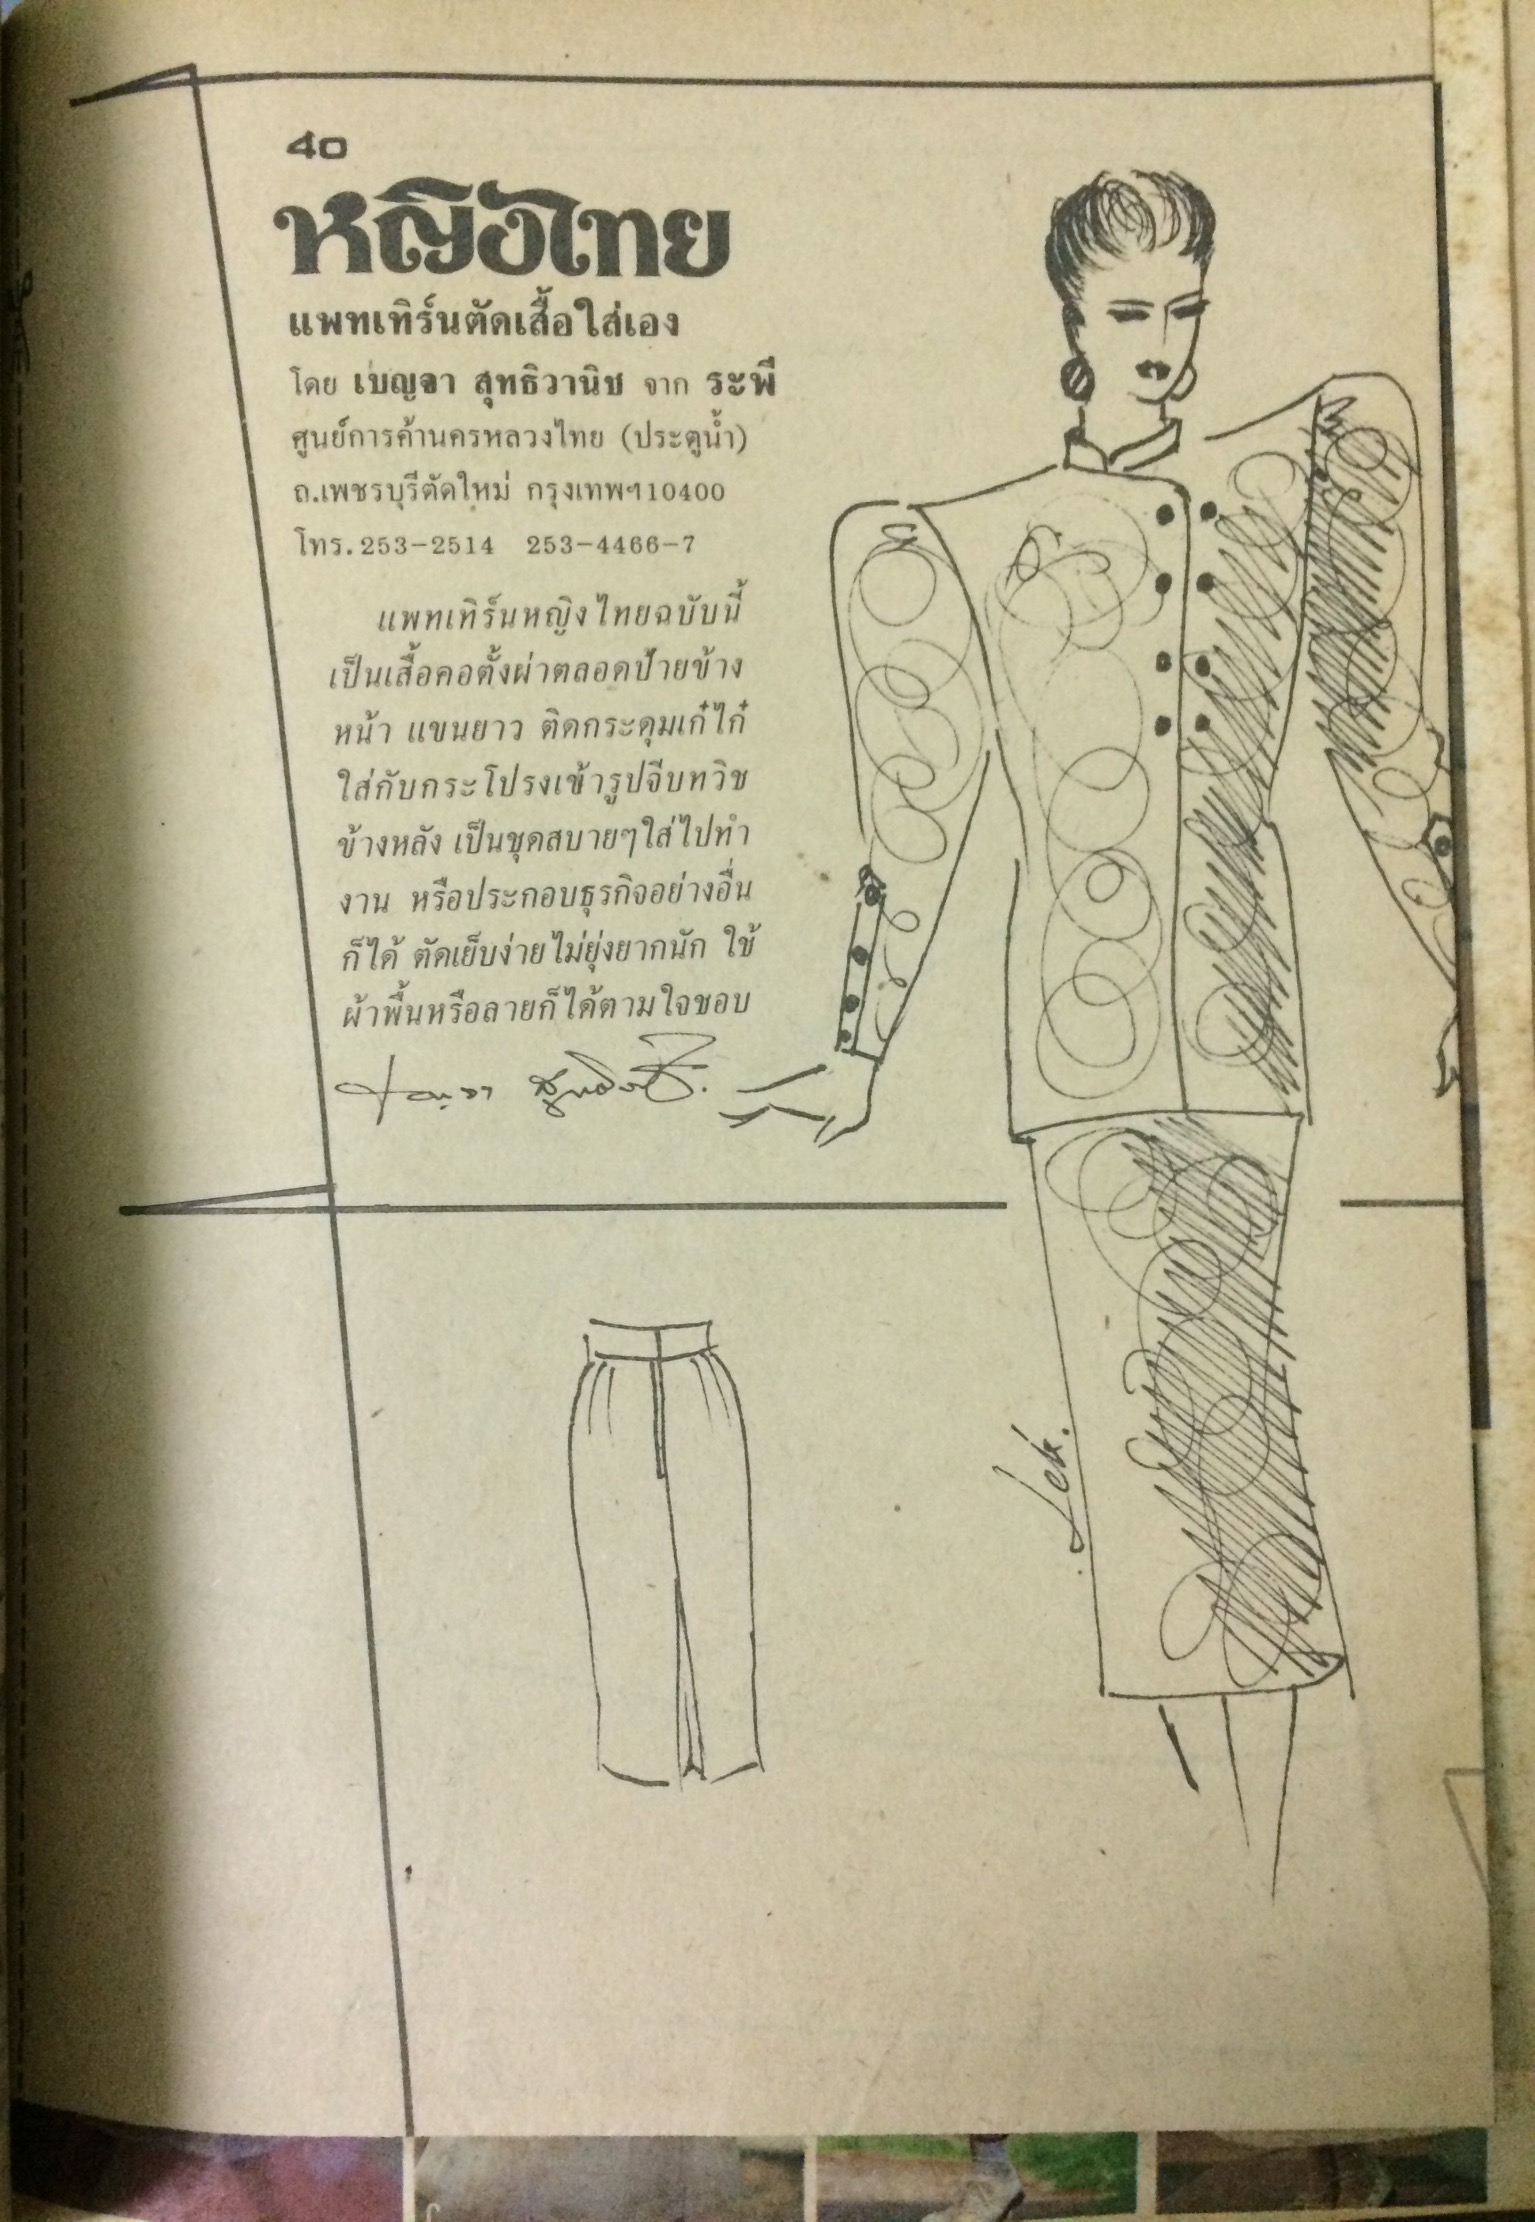 40
หญิงไทย
แพทเทิร์นตัดเสื้อใส่เอง
โดย เบญจา สุทธิวานิช จาก ระพี
ศูนย์การค้านครหลวงไทย (ประตูน้ำ)
ถ.เพชรบุรีตัดใหม่ กรุงเทพฯ10400
โทร.253-2514 253-4466-7
แพทเทิร์นหญิงไทยฉบับนี้
เป็นเสื้อคอตั้งผ่าตลอดป้ายข้าง
หน้า แขนยาว ติดกระดุมเก๋ไก๋
ใส่กับกระโปรงเข้ารูปจีบทวิช
ข้างหลัง เป็นชุดสบายๆใส่ไปทำ
งาน หรือประกอบธุรกิจอย่างอื่น
ก็ได้ ตัดเย็บง่ายไม่ยุ่งยากนัก ใช้
ผ้าพื้นหรือลายก็ได้ตามใจชอบ
Lek.